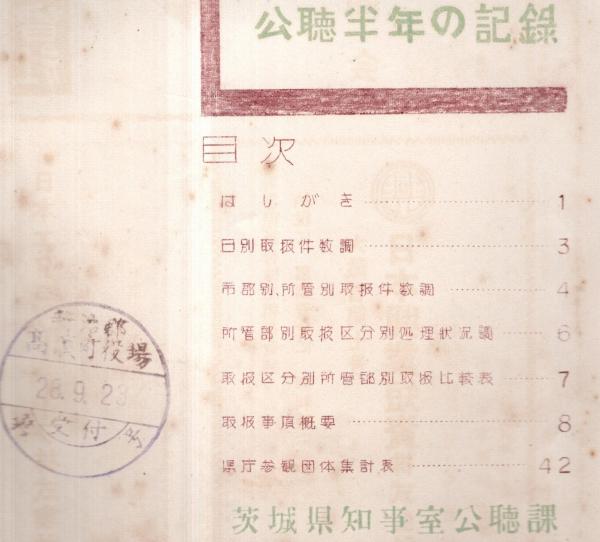 公聴半年の記錄
目次
はしがき 1
日別取扱件数調 3
市郡別、所管別取扱件数調 4
所管部別取扱区分別処理状况調 6
取扱区分別所管部別取扱比較表 7
取扱事項概要 8
県庁参観団体集計表 42
茨城県知事室公聴課
新治郡
高浜町役場
28.9.23
受付